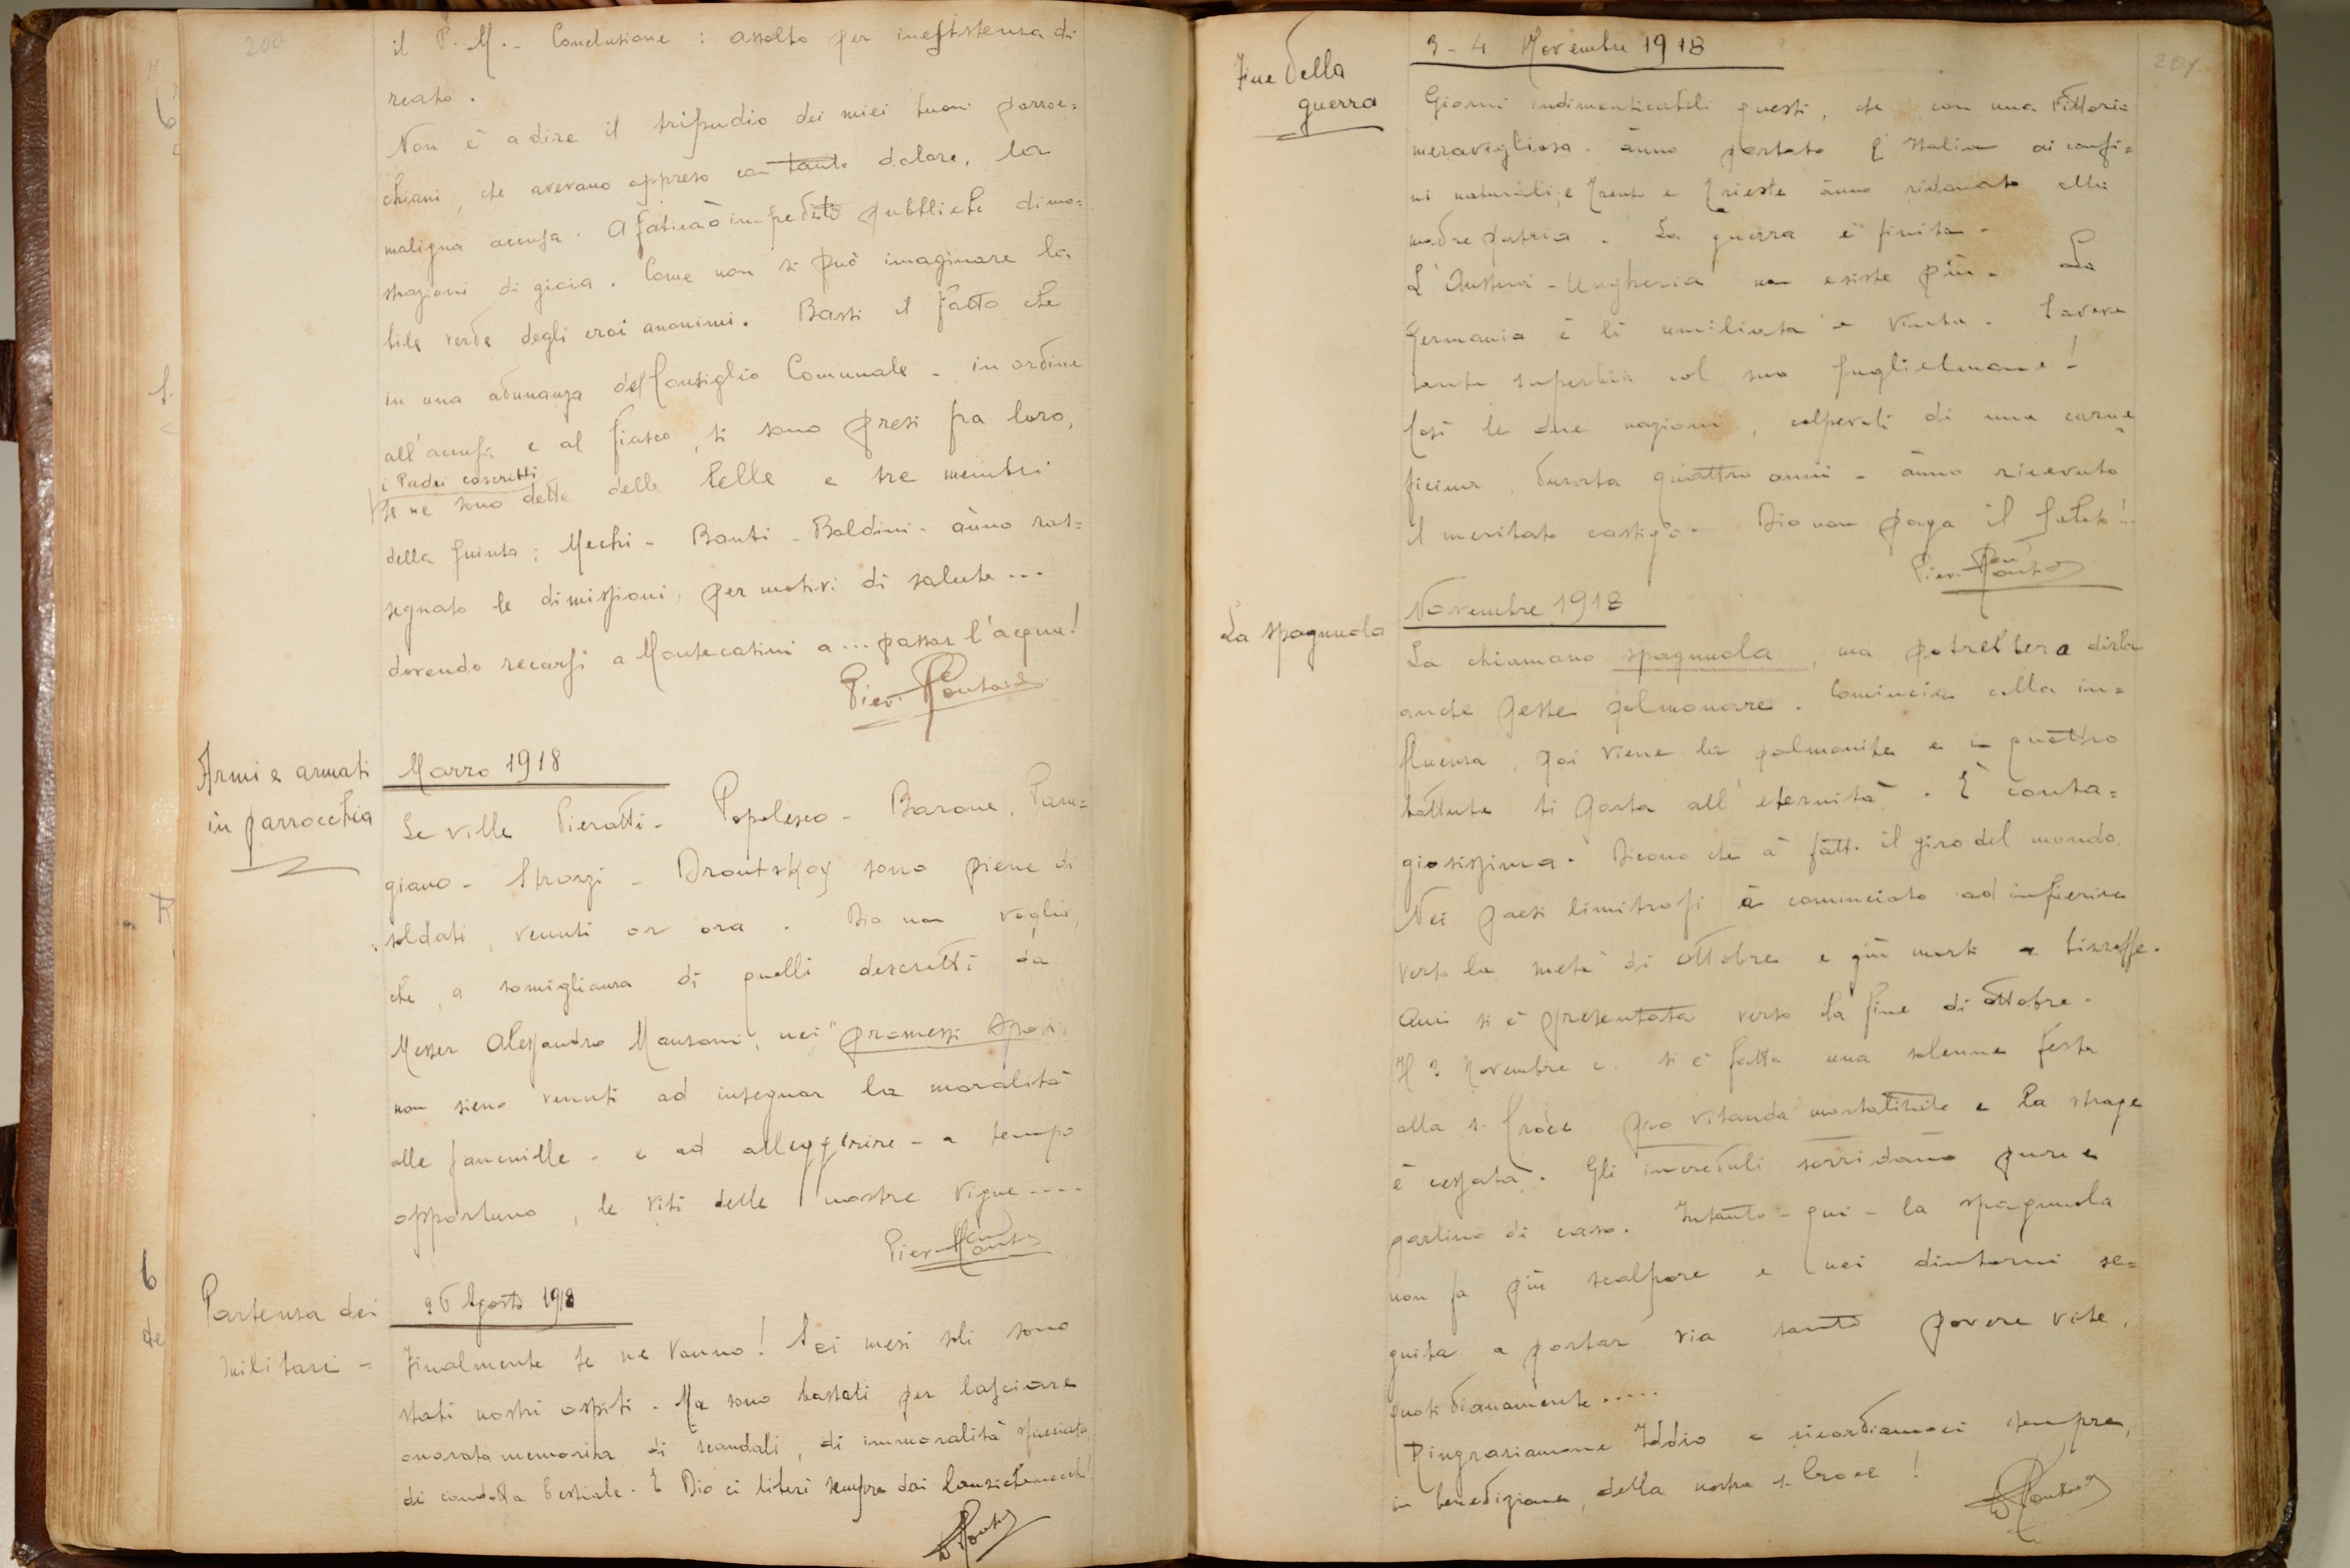 200
il P. M. - Conclusione : assolto per inesistenza di
reato.
Non è a dire il tripudio dei miei buoni parroc=
chiani, che avevano appreso con tanto dolore, la
maligna accusa. A fatica ò impedito pubbliche dimo=
strazioni di gioia. Come non si può imaginare la
bile verde degli eroi anonimi. Basti il fatto che
in una adunanza del Consiglio Comunale - in ordine
all'accusa e al fiasco, si sono presi fra loro,
i Padri coscritti
se ne sono dette delle belle e tre membri
della giunta: Mechi - Banti - Baldini - ànno ras=
segnato le dimissioni, per motivi di salute ...
dovendo recarsi a Montecatini a ... passar l'acqua!
Armi e armati
in parrocchia
Marzo 1918
Le ville Pieratti - Popolesco - Barone, Par=
giano - Strozzi - Droutskoy sono piene di
soldati, venuti or ora. Dio non voglia,
che, a somiglianza di quelli descritti da
Messer Alessandro Manzoni, nei "promessi sposi,
non sieno venuti ad insegnar la moralità
alle fanciulle - e ad alleggerire - a tempo
opportuno, le viti delle nostre vigne ....
Partenza dei
militari =
26 Agosto 1918
Finalmente se ne vanno! Sei mesi soli sono
stati nostri ospiti. Ma sono bastati per lasciare
onorata memoria di scandali, di immoralità spacciata,
di condotta bestiale. E Dio ci liberi sempre dai lanzichenecchi!
201
Fine della
guerra
3 - 4 Novembre 1918
Giorni indimenticabili questi, che con una vittoria
meravigliosa - ànno portato l'Italia ai confi=
ni naturali; e Trento e Trieste ànno ridonato alla
madre patria. La guerra è finita.
L'Austria - Ungheria non esiste più. La
Germania è lì umiliata e vinta. Aveva
tanta superbia col suo Guglielmone!
Così le due nazioni, colpevoli di una carne
ficina, durata quattro anni - ànno ricevuto
il meritato castigo. Dio non paga il sabato!..
La spagnuola
Novembre 1918
La chiamano spagnuola, ma potrebbero dirla
anche peste polmonare. Comincia colla in=
fluenza, poi viene la polmonite e in quattro
battute ti porta all'eternità. È conta=
giosissima. Dicono che à fatto il giro del mondo.
Nei paesi limitrofi à cominciato ad infierire
verso la metà di ottobre e giù morti a bizzeffe.
Qui si è presentata verso la fine di ottobre.
Il 3 Novembre c. si è fatta una solenne festa
alla s. Croce pro vitanda mortalitate e la strage
è cessata. Gli increduli sorridano pure e
parlino di caso. Intanto - qui - la spagnuola
non fa più scalpore e nei dintorni se=
guita a portar via tante povere vite,
quotidianamente .....
Ringraziamone Iddio e ricordiamoci sempre,
in benedizione, della nostra s. Croce!